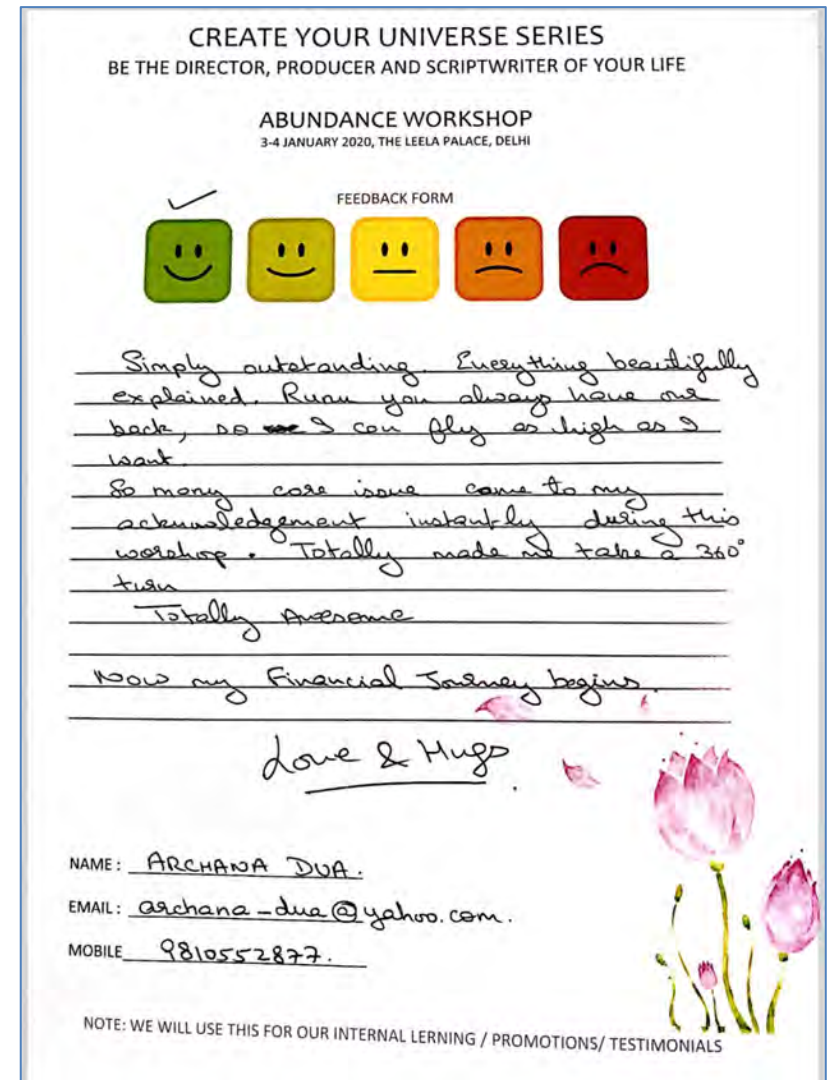 CREATE YOUR UNIVERSE SERIES
BE THE DIRECTOR, PRODUCER AND SCRIPTWRITER OF YOUR LIFE
ABUNDANCE WORKSHOP
3-4 JANUARY 2020, THE LEELA PALACE, DELHI
FEEDBACK FORM
Simply outstanding. Everything beautifully
explained. Runu you always have our
back, so I can fly as high as I
want.
So many core issue came to my
acknowledgement instantly during this
worshop. Totally made me take a 360°
turn
Totally Awesome
Now my Financial Journey begins.
Love & Hugs.
NAME: ARCHANA DUA.
EMAIL: archana-dua@yahoo.com.
MOBILE 9810552877.
NOTE: WE WILL USE THIS FOR OUR INTERNAL LERNING / PROMOTIONS/ TESTIMONIALS